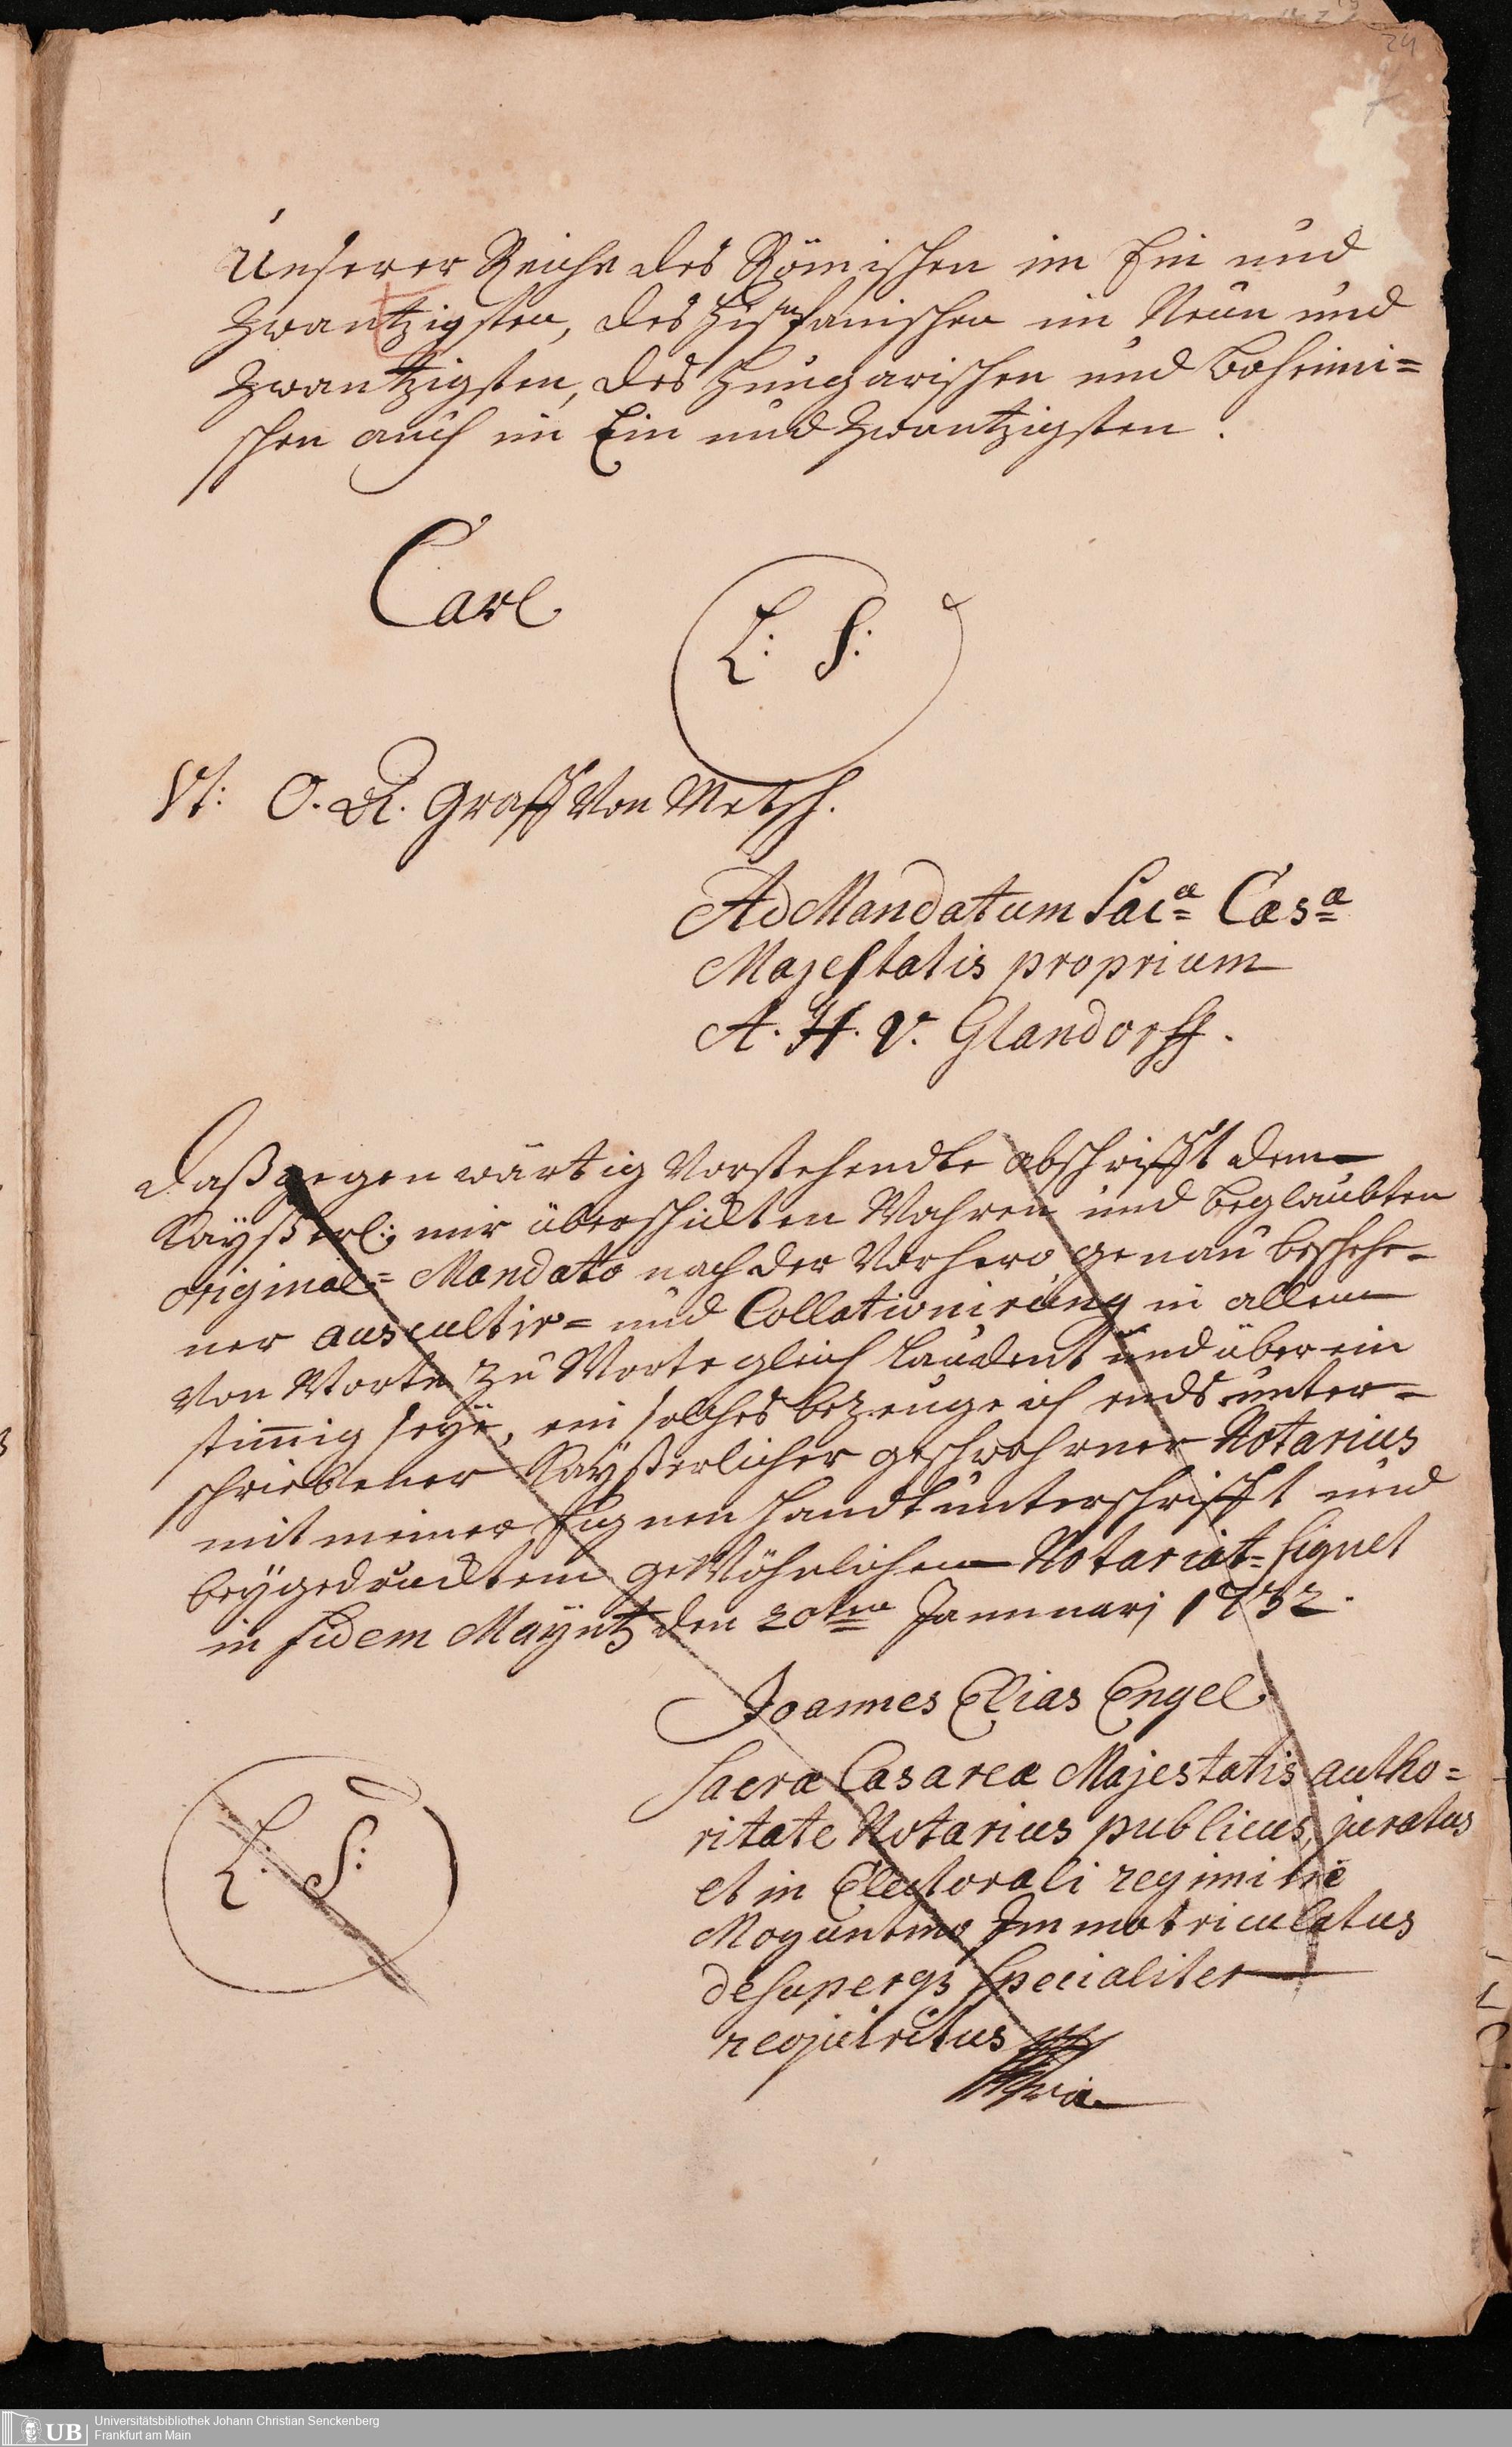 24
Unserer Reiche des Römischen im Ein und
Zwantzigsten, des Hispanischen im Neün und
Zwantzigsten, des Hungarischen und Boheimi=
schen auch im Ein und Zwantzigsten.
Carl
L: S:
Vt: O. A. Graff Von Metsch.
Ad Mandatum Sac:æ Cæs:æ
Majestatis proprium
A. H. V. Glandorff.
Daß gegenwärtig Vorstehendte abschrifft dem
Kayßerl: mir überschickten Wahren und beglaubten
original= Mandato, nach der Vorhero genau beschehe=
ner auscultir= und Collationirung in allem
Von Worte zu Worte gleich laudent und überein
stimmig seye, ein solches bezeuge ich ends unter=
schriebener Kayßerlicher geschwohrner Notarius
mit meiner Eugnen Handtunterschrifft und
beygedrucktem gewöhnlichem Notariat= Signet
in fidem Mayntz den 20ten Jannuarj 1732.
Joannes Elias Engel
Sacræ Cæsareæ Majestatis autho=
ritate Notarius publicus, juratus
et in Electorali regimine
Moguntino Immatriculatus
desuperqз Specialiter
requisitus
L: S:
UB
Universitätsbibliothek Johann Christian Senckenberg
Frankfurt am Main